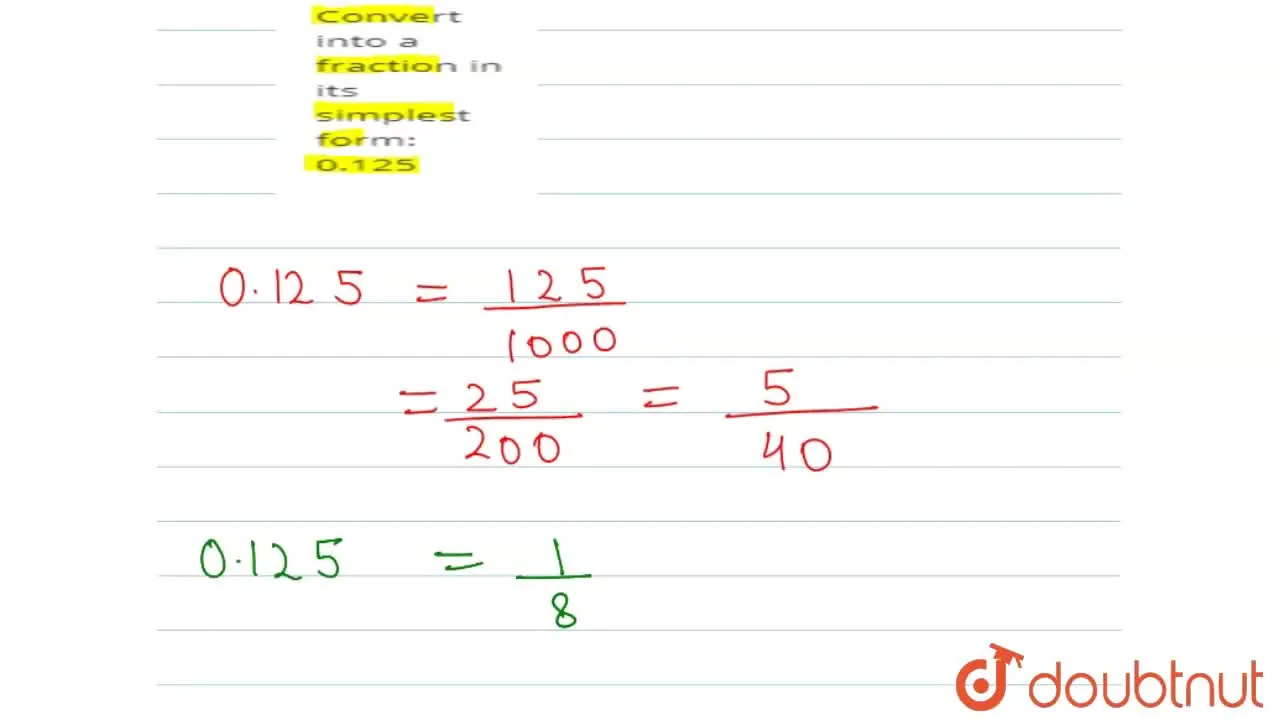 Convert
into a
fraction in
its
simplest
form:
0.125
0.125 = 125/1000
= 25/200 = 5/40
0.125 = 1/8
doubtnut